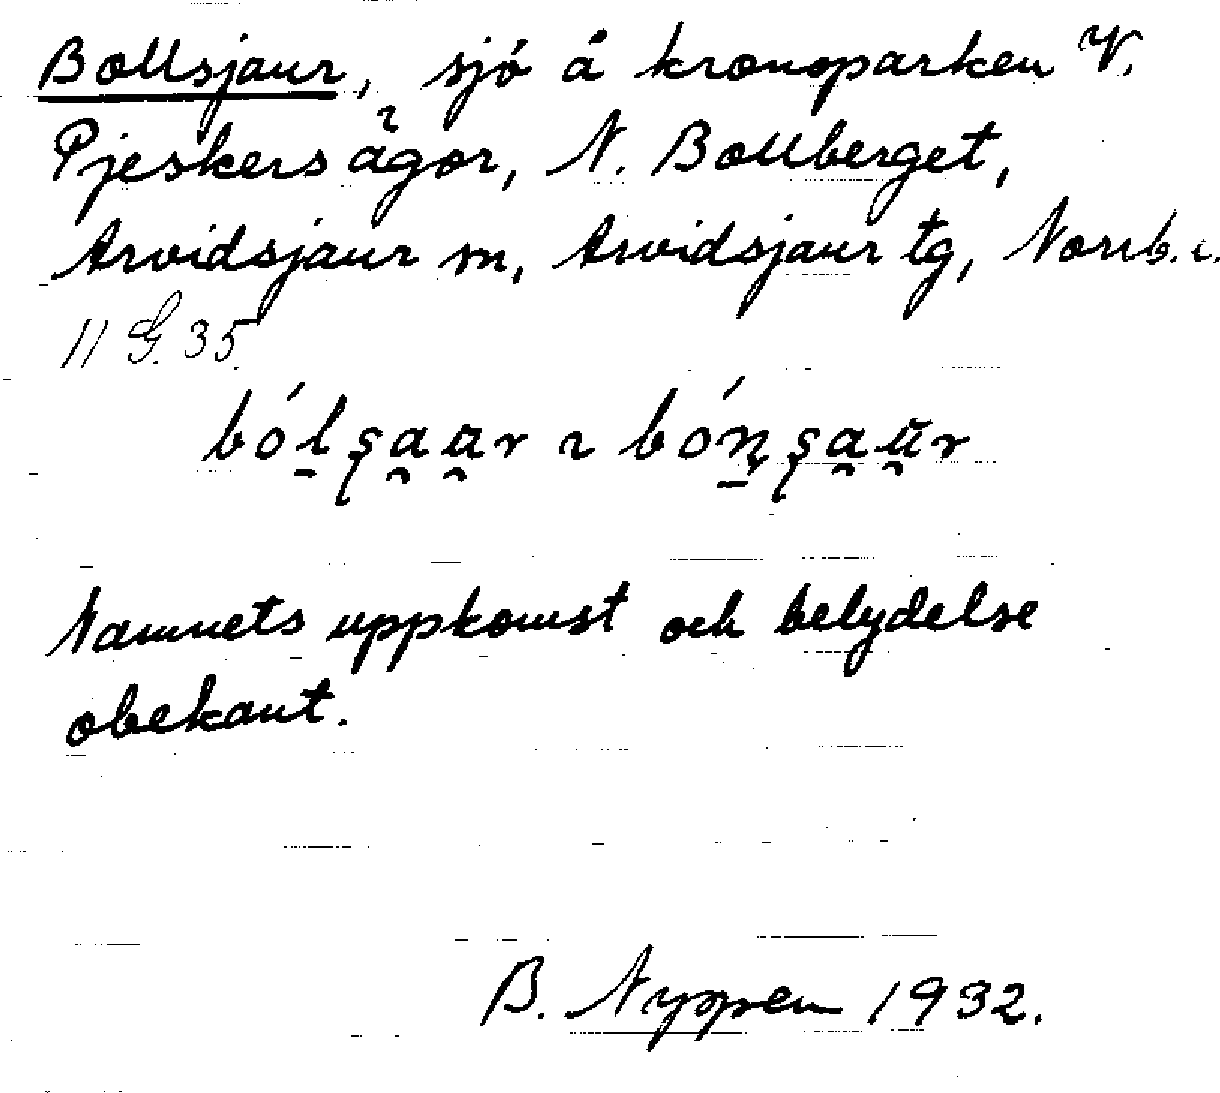 Bollsjaur, sjö å kronoparken V.
Pjeskers ågor, N. Bollberget,
Arvidsjaur sn, Arvidsjaur tg, Norrb. l.
11 G. 35.
Namnets uppkomst och betydelse
obekant.
B. Nyppen 1932.